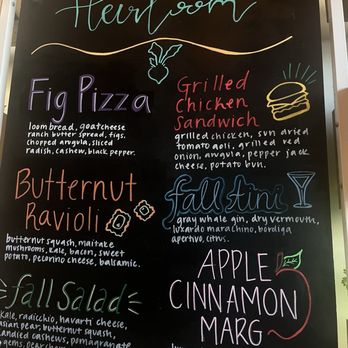 Heirloom
Fig Pizza
loom bread, goat cheese
ranch butter spread, figs.
chopped arugula, sliced
radish, cashew, black pepper.
Grilled
Chicken
Sandwich
grilled chicken, sun dried
tomato aoli, grilled red
onion, arugula, pepper jack
cheese, potato bun.
Butternut
Ravioli
butternut squash, maitake
mushrooms, kale, bacon, sweet
potato, pecorino cheese, balsamic.
fall tini
gray whale gin, dry vermouth,
luxardo marachino, bordiga
apertivo, citrus.
fall Salad
kale, radicchio, havarti cheese,
asian pear, butternut squash,
candied cashews, pomagranate
APPLE
CINNAMON
MARG